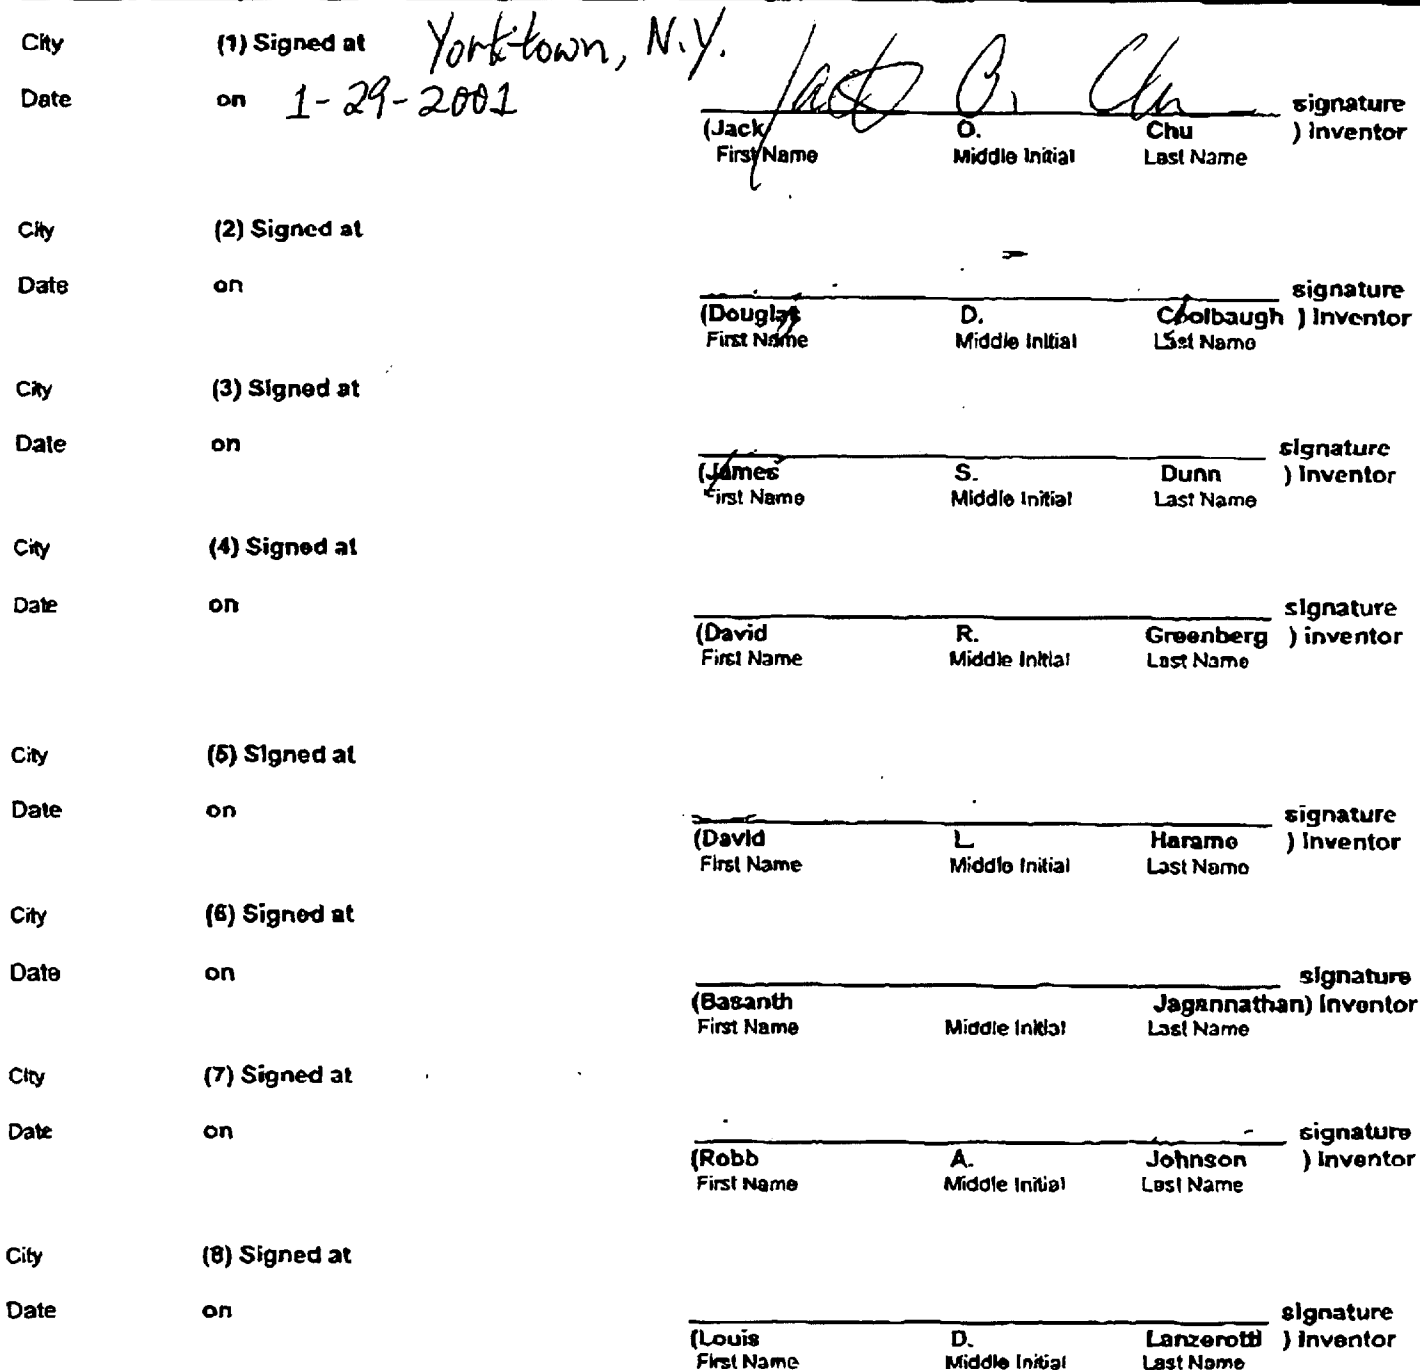 City (1) Signed at Yorktown, N.Y.
Date on 1-29-2001
Jack O. Chu signature
(Jack O. Chu ) Inventor
First Name Middle Initial Last Name
City (2) Signed at
Date on
signature
(Douglas D. Coolbaugh ) Inventor
First Name Middle Initial Last Name
City (3) Signed at
Date on
signature
(James S. Dunn ) Inventor
First Name Middle Initial Last Name
City (4) Signed at
Date on
signature
(David R. Greenberg ) inventor
First Name Middle Initial Last Name
City (5) Signed at
Date on
signature
(David L. Harame ) Inventor
First Name Middle Initial Last Name
City (6) Signed at
Date on
signature
(Basanth Jagannathan) Inventor
First Name Middle Initial Last Name
City (7) Signed at
Date on
signature
(Robb A. Johnson ) Inventor
First Name Middle Initial Last Name
City (8) Signed at
Date on
signature
(Louis D. Lanzerotti ) Inventor
First Name Middle Initial Last Name